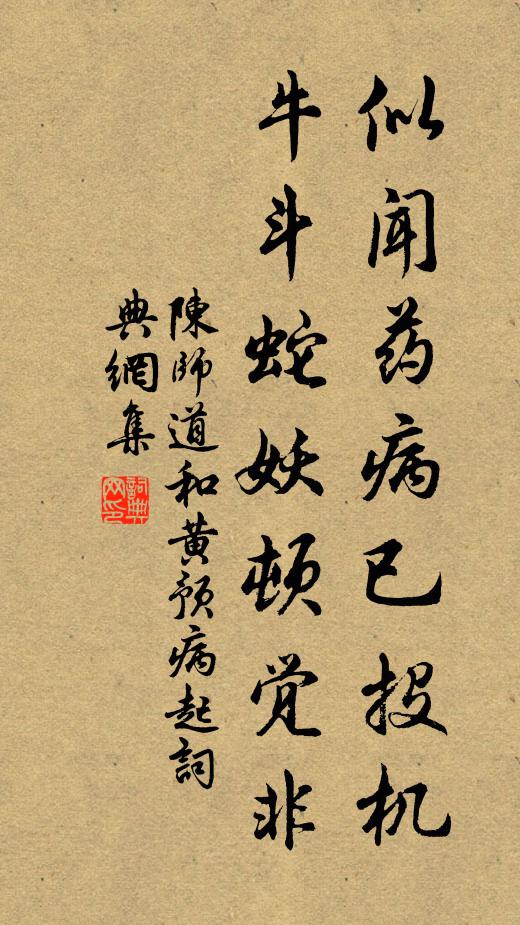 似闻药病已投机
牛斗蛇妖顿觉非
陳师道和黄预病起詞
典網集
詞典
网印